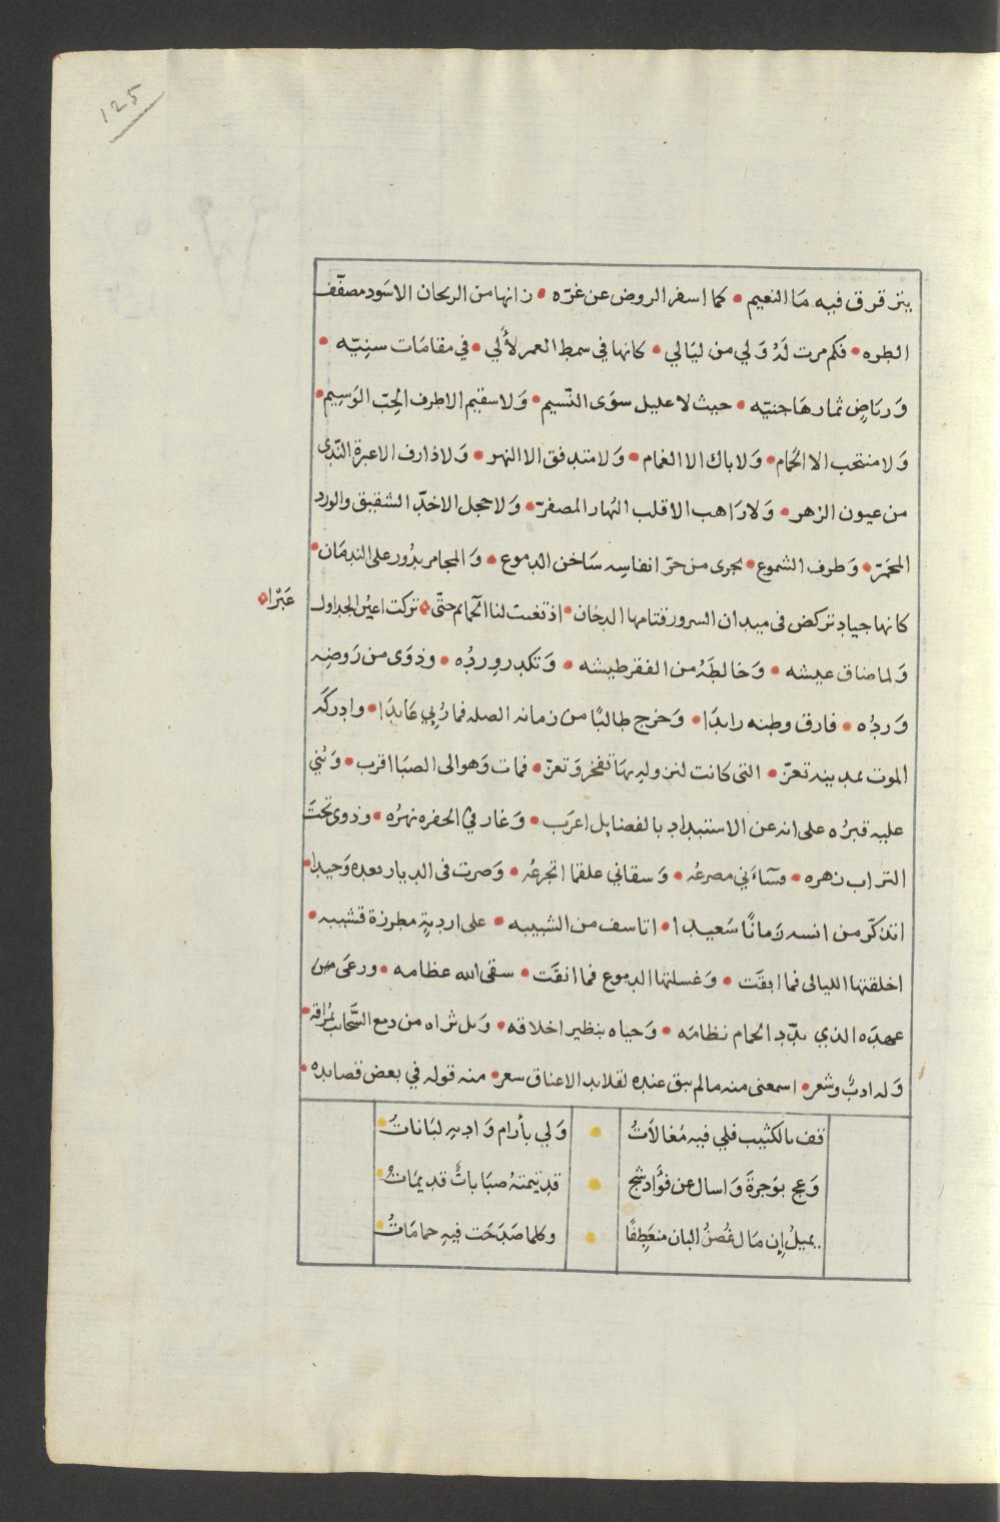 125
يترقرق فيه مَا النعيم • كما اسفر الروض عن غرّه • زانها من الريحان الاسَود مصفّف
الطره • فكم مرت لَهُ وَلي من ليَالي • كانها في سمط العمر لأَلي • في مقامَات سنِيّه •
وَريَاضٍ ثمارهَا جنيّه • حيث لا عليل سوَى النّسيم • وَلا سقيم الا طرف الحِبّ الوَسِيم •
وَلا منتحب الا الحَمام • وَلا باك الا الغمام • وَلا متدفق الا النهر • وَلا ذارف الا عبرة النّدى
من عيون الزهر • وَلا رَاهب الا قلب النهار المصفرّ • وَلا خجل الا خدّ الشقيق والورد
المحمَرّ • وَطرف الشموع • يجرى من حرّ انفاسِه سَاخن الدموع • وَالمجامر يدُور على الندمَان •
كانها جياد تركض فى ميدان السرور قتامها الدخان • اذ تغنت لنا الحَمايم حتّى تركت اعيُن الجداول
عَبْرا
وَلما ضاق عيشه • وَخالطَهُ من الفقر طيشه • وَتكدر وِردُه • وذوَى من رَوضِه
وَردُه • فارق وطنه رايدَا • وَخرج طالبًا من زمانه الصله فما رُبي عَايدَا • وادركَه
الموت بمدينة تعزّ • التى كانت لمن وليهَا تفخر وَتعزّ • فمات وَهو الى الصبَا اقرب • وَبُني
عليه قبرُه على انه عن الاستبداد بالفضايل اعرَب • وَغار في الحفره نهرُه • وذوى تحتَ
التراب زهره • فسَآءَني مصرعُه • وَسقاني علقما اتجرعُه • وَصرت فى الديار بعده وَحيدا •
اتذكّر من انسه زمانًا سَعيدا • اتاسف من الشبيبه • على ارديةٍ مطرزة قشيبه •
اخلقتها الليالى فما ابقَت • وَغسلتها الدموع فما انقَت • سقى الله عظامه • ورعَى من
عهدَه الذي بدّد الحمام نظامَه • وَحياه بنظير اخلاقه • وَبل ثراه من دمع السَّحاب بمُراقه •
وَله ادبٌ وشعر • اسمعنى منه ما لم يبق عنده لقلايد الاعناق سعر • منه قوله في بعض قصايده •
قف بالكثيب فلي فيه مُغالاَتُ • وَلي بأرام وَاديهِ لبَاناتُ
وَعج بوَجرةَ وَاسال عن فؤَاد شجٍ • قد تيمتهُ صبَاباتٌ قديمَاتُ
يميلُ إِن مَال غُصنُ البان منعَطِفًا • وكلما صَدَحَت فيهِ حمامَاتُ